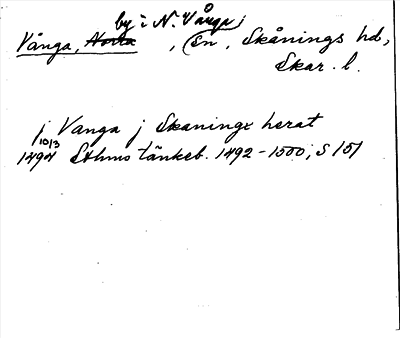 by i N. Vånga
Vånga, Norra, sn, Skånings hd,
Skar. l.
j Vanga j Skaningx herat
10/3
1494 Sthms tänkeb. 1492-1500, S 151